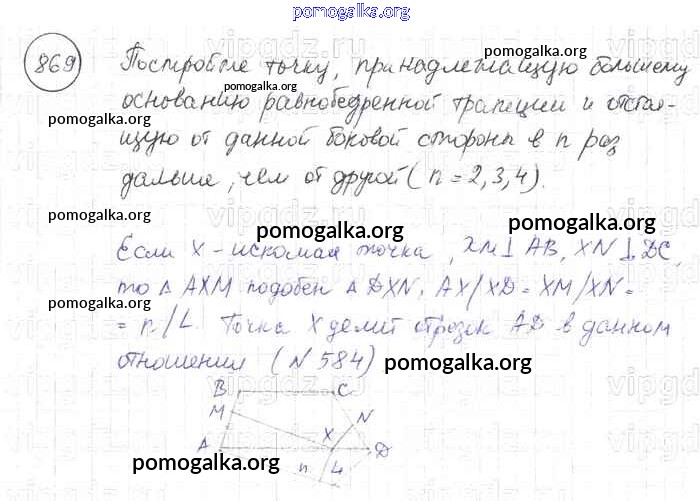 pomogalka.org
869
Постройте точку, принадлежащую большему
основанию равнобедренной трапеции и отстоя-
щую от данной боковой стороны в n раз
дальше, чем от другой (n = 2, 3, 4).
Если X - искомая точка, XM ⊥ AB, XN ⊥ DC,
то Δ AXM подобен Δ DXN, AX/XD = XM/XN =
= n/1. Точка X делит отрезок AD в данном
отношении (N 584)
B C
M N
A X D
n 1
pomogalka.org
pomogalka.org
pomogalka.org
pomogalka.org
pomogalka.org
pomogalka.org
pomogalka.org
pomogalka.org
pomogalka.org